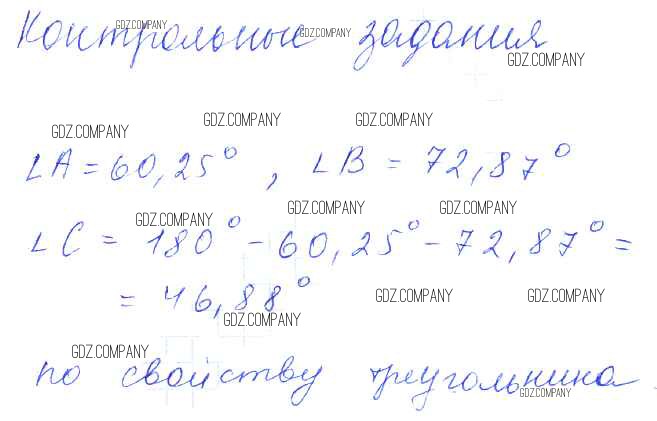 Контрольные задания
∠A = 60,25°, ∠B = 72,87°
∠C = 180° - 60,25° - 72,87° =
= 46,88°
по свойству треугольника
GDZ.COMPANY
GDZ.COMPANY
GDZ.COMPANY
GDZ.COMPANY
GDZ.COMPANY
GDZ.COMPANY
GDZ.COMPANY
GDZ.COMPANY
GDZ.COMPANY
GDZ.COMPANY
GDZ.COMPANY
GDZ.COMPANY
GDZ.COMPANY
GDZ.COMPANY